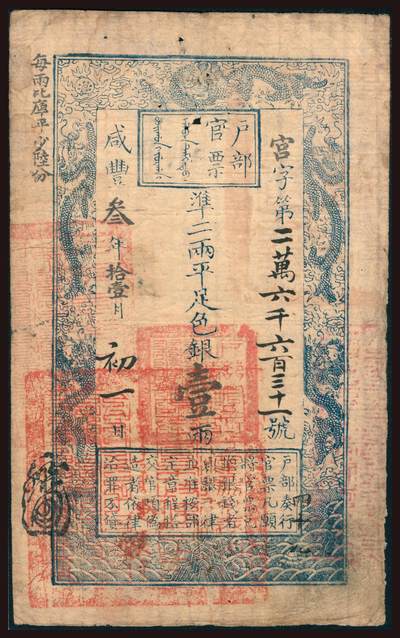 宮字第二萬六千六百三十一號
戶部
官票
準二兩平足色銀壹兩
咸豐叁年拾壹月初一日
每兩比庫平少陸份
戶部奏行
官票凡願
將官票兌
換銀錢者
與銀一律
並准按部
定章程搭
交官項偽
造者依律
治罪不貸